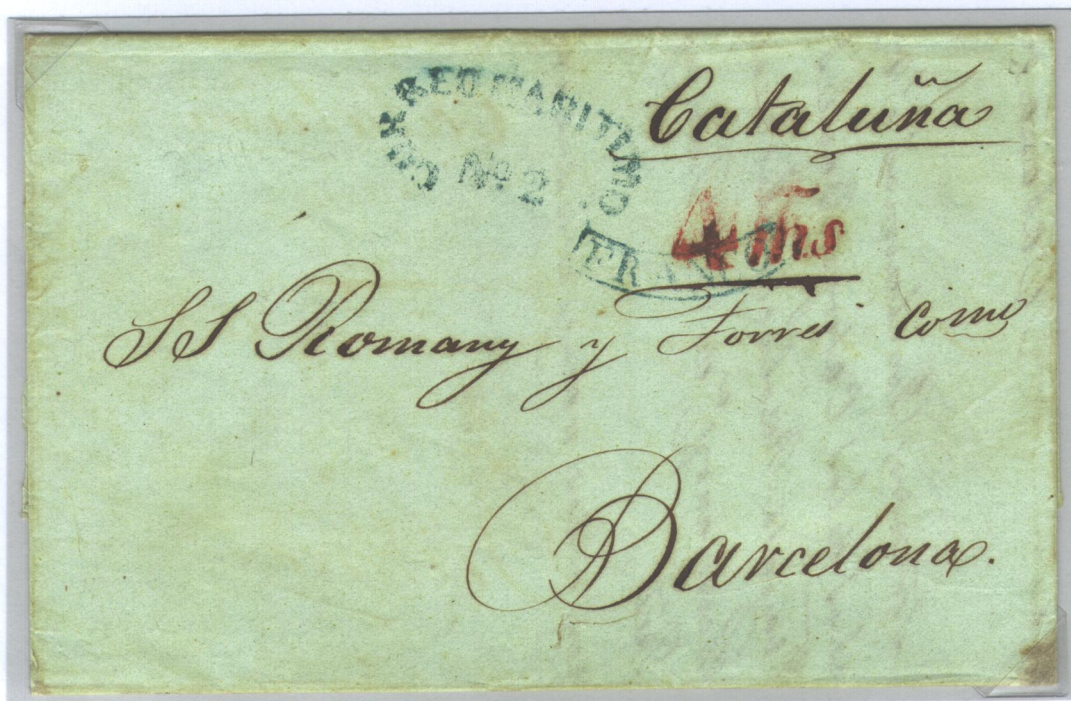 CORREO MARITIMO
Nº 2
Cataluña
4 Rs
FRANCO
SS Romany y Torres Como
Barcelona.